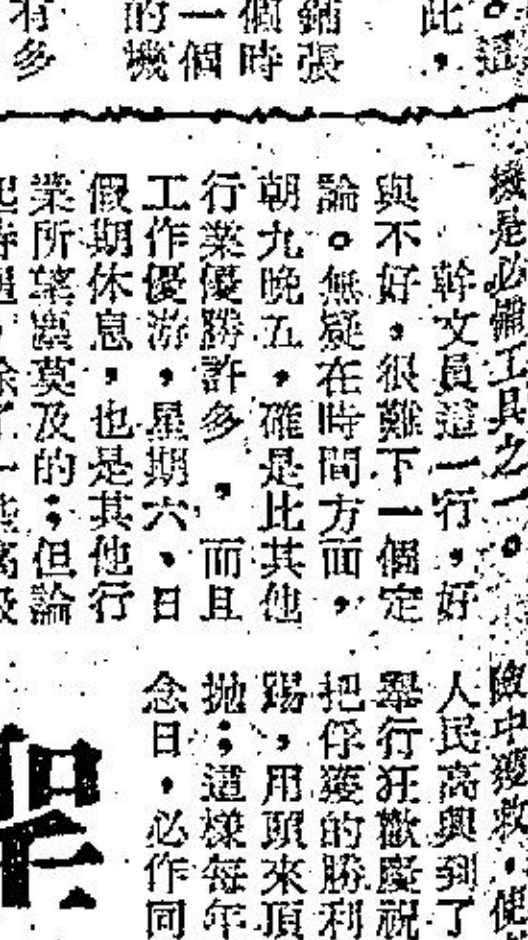 此，
鋪張
個時
一個
的機
有多
機是必備工具之一。
幹文員這一行，好
與不好，很難下一個定
論。無疑在時間方面，
朝九晚五，確是比其他
行業優勝許多，而且
工作優游，星期六、日
假期休息，也是其他行
業所望塵莫及的；但論
險中獲救，使
人民高興到了
舉行狂歡慶祝
把俘獲的勝利
踢，用頭來頂
拋；這樣每年
念日，必作同
聖